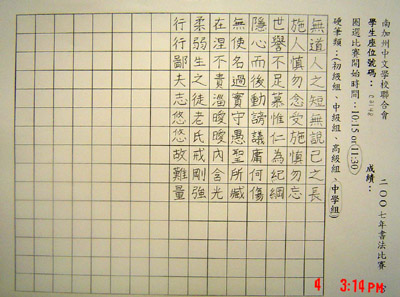 南加州中文學校聯合會 二○○七年書法比賽
學生座位號碼： 成績：
圈選比賽開始時間：10:15 or 11:30
硬筆類：(初級組、中級組、高級組、中學組)
無道人之短無說己之長
施人慎勿念受施慎勿忘
世譽不足慕惟仁為紀綱
隱心而後動謗議庸何傷
無使名過實守愚聖所臧
在涅不貴淄曖曖內含光
柔弱生之徒老氏戒剛強
行行鄙夫志悠悠故難量
4 3:14 PM